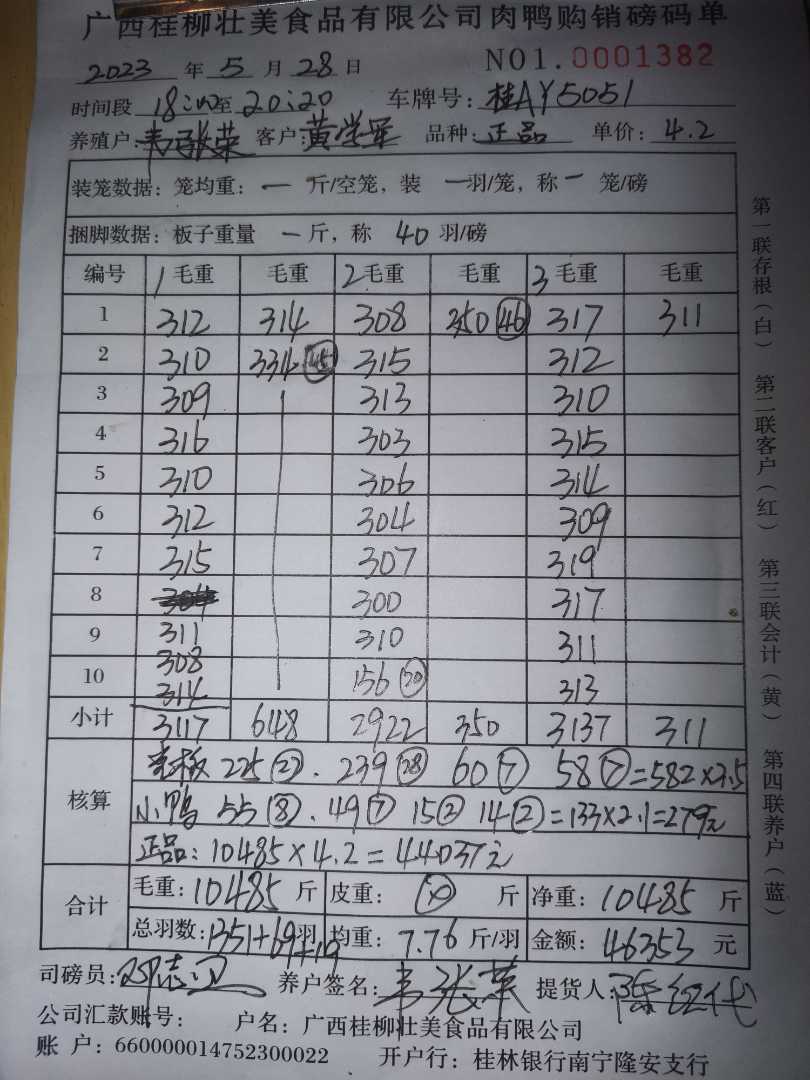 广西桂柳壮美食品有限公司肉鸭购销磅码单
2023 年 5 月 28 日 NO1.0001382
时间段 18:00至 20:20 车牌号:桂AY5051
养殖户: 韦张荣 客户:黄学军 品种: 正品 单价: 4.2
装笼数据:笼均重: 一 斤/空笼,装 一羽/笼,称 一 笼/磅
捆脚数据:板子重量 一 斤,称 40 羽/磅
编号 1 毛重 毛重 2 毛重 毛重 3 毛重 毛重
1 312 314 308 350 (46) 317 311
2 310 334 (45) 315 312
3 309 313 310
4 316 303 315
5 310 306 314
6 312 304 309
7 315 307 319
8 304 300 317
9 311 310 311
308
10 314 156 (20) 313
小计 3117 648 2922 350 3137 311
核算
225 . 239 (28) 60 (7) 58 (7) =582×3.5
小鸭 55 (8) . 49 (7) 15 (2) 14 (2) =133×2.1=279元
正品:10485×4.2=44037元
合计
毛重:10485 斤 皮重: 斤 净重:10485 斤
总羽数:1351+69+19羽 均重:7.76 斤/羽 金额:46353 元
司磅员: 养户签名:韦张荣 提货人:
公司汇款账号: 户名:广西桂柳壮美食品有限公司
账 户:660000014752300022 开户行:桂林银行南宁隆安支行
第一联存根(白) 第二联客户(红) 第三联会计(黄) 第四联养户(蓝)